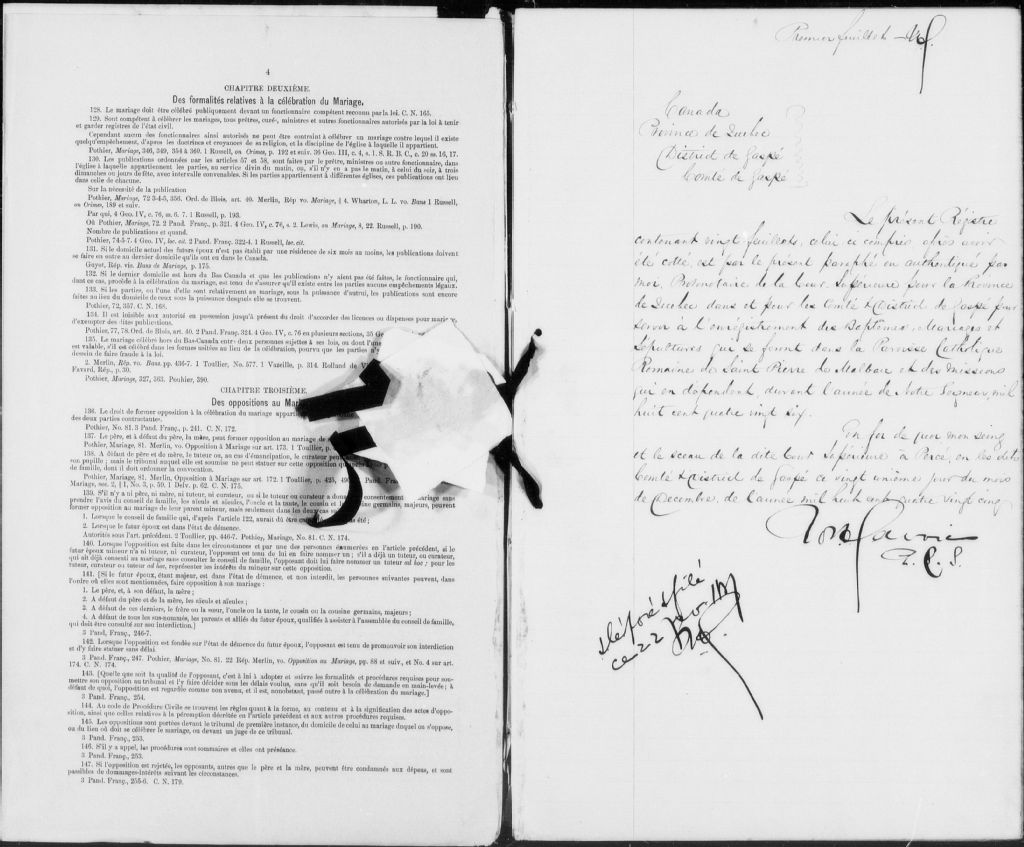 4
CHAPITRE DEUXIÈME.
Des formalités relatives à la célébration du Mariage.
128. Le mariage doit être célébré publiquement devant un fonctionnaire compétent reconnu par la loi. C. N. 165.
129. Sont compétents à célébrer les mariages, tous prêtres, curés, ministres et autres fonctionnaires autorisés par la loi à tenir
et garder registres de l'état civil.
Cependant aucun des fonctionnaires ainsi autorisés ne peut être contraint à célébrer un mariage contre lequel il existe
quelqu'empêchement, d'après les doctrines et croyances de sa religion, et la discipline de l'église à laquelle il appartient.
Pothier, Mariage, 346, 349, 354 à 360. 1 Russell, on Crimes, p. 192 et suiv. 36 Geo. III, c. 4, s. 1. S. R. B. C., c. 20 ss. 16, 17.
130. Les publications ordonnées par les articles 57 et 58, sont faites par le prêtre, ministre ou autre fonctionnaire, dans
l'église à laquelle appartiennent les parties, au service divin du matin, ou, s'il n'y en a pas le matin, à celui du soir, à trois
dimanches ou jours de fête, avec intervalle convenables. Si les parties appartiennent à différentes églises, ces publications ont lieu
dans celle de chacune.
Sur la nécessité de la publication
Pothier, Mariage, 72 3-4-5, 356. Ord. de Blois, art. 40. Merlin, Rép vo. Mariage, § 4. Wharton, L. L. vo. Bans 1 Russell,
on Crimes, 189 et suiv.
Par qui, 4 Geo. IV, c. 76, ss. 6. 7. 1 Russell, p. 193.
Où Pothier, Mariage, 72. 2 Pand. Franç., p. 321. 4 Geo. IV, c. 76, s. 2. Lewis, on Marriage, 8, 22. Russell, p. 190.
Nombre de publications et quand.
Pothier, 74-5-7. 4 Geo. IV, loc. cit. 2 Pand. Franç. 322-4. 1 Russell, loc. cit.
131. Si le domicile actuel des futurs époux n'est pas établi par une résidence de six mois au moins, les publications doivent
se faire en outre au dernier domicile qu'ils ont eu dans le Bas Canada.
Guyot, Rép. vis. Bans de Mariage, p. 175.
132. Si le dernier domicile est hors du Bas Canada et que les publications n'y aient pas été faites, le fonctionnaire qui,
dans ce cas, procède à la célébration du mariage, est tenu de s'assurer qu'il existe entre les parties aucuns empêchements légaux.
133. Si les parties, ou l'une d'elles sont relativement au mariage, sous la puissance d'autrui, les publications sont encore
faites au lieu du domicile de ceux sous la puissance desquels elles se trouvent.
Pothier, 72, 357. C. N. 168.
134. Il est loisible aux autorités en possession jusqu'à présent du droit d'accorder des licences ou dispenses pour mariage,
d'exempter des dites publications.
Pothier, 77, 78. Ord. de Blois, art. 40. 2 Pand. Franç. 324. 4 Geo. IV, c. 76 en plusieurs sections, 35
135. Le mariage célébré hors du Bas-Canada entre deux personnes sujettes à ses lois, ou dont l'une
est valable, s'il est célébré dans les formes usitées au lieu de la célébration, pourvu que les parties n'y
dessein de faire fraude à la loi.
2. Merlin, Rép. vo. Bans. pp. 436-7. 1 Toullier, No. 577. 1 Vazeille, p. 314. Rolland de
Favard, Rép., p. 30.
Pothier, Mariage, 327, 363. Pouhier, 390.
CHAPITRE TROISIÈME.
Des oppositions au
136. Le droit de former opposition à la célébration du mariage
des deux parties contractantes.
Pothier, No. 81. 3 Pand. Franç., p. 241. C. N. 172.
137. Le père, et à défaut du père, la mère, peut former opposition au mariage de
Pothier, Mariage, 81. Merlin, vo. Opposition à Mariage sur art. 173. 1 Toullier,
138. A défaut de père et de mère, le tuteur ou, au cas d'émancipation, le curateur
son pupille; mais le tribunal auquel elle est soumise ne peut statuer sur cette opposition
de famille, dont il doit ordonner la convocation.
Pothier, Mariage, 81. Merlin, Opposition à Mariage sur art. 172. 1 Toullier, p. 425, Pand.
Mariage, sec. 2, § 1, No. 3, p. 59. 1 Delv. p. 62. C. N. 175.
139. S'il n'y a ni père, ni mère, ni tuteur, ni curateur, ou si le tuteur ou curateur a consentement mariage sans
prendre l'avis du conseil de famille, les aïeuls et aïeules, l'oncle et la tante, le cousin et germains, majeurs, peuvent
former opposition au mariage de leur parent mineur, mais seulement dans les deux
1. Lorsque le conseil de famille qui, d'après l'article 122, aurait dû être été;
2. Lorsque le futur époux est dans l'état de démence.
Autorités sous l'art. précédent. 2 Toullier, pp. 446-7. Pothier, Mariage, No. 81. C. N. 174.
140. Lorsque l'opposition est faite dans les circonstances et par une des personnes énumérées en l'article précédent, si le
futur époux mineur n'a ni tuteur, ni curateur, l'opposant est tenu de lui en faire nommer un; s'il a déjà un tuteur, ou curateur,
qui ait déjà consenti au mariage sans consulter le conseil de famille, l'opposant doit lui faire nommer un tuteur ad hoc; pour les
tuteur, curateur ou tuteur ad hoc, représenter les intérêts du mineur sur cette opposition.
141. [Si le futur époux, étant majeur, est dans l'état de démence, et non interdit, les personnes suivantes peuvent, dans
l'ordre où elles sont mentionnées, faire opposition à son mariage :
1. Le père, et, à son défaut, la mère;
2. A défaut du père et de la mère, les aïeuls et aïeules;
3. A défaut de ces derniers, le frère ou la sœur, l'oncle ou la tante, le cousin ou la cousine germains, majeurs;
4. A défaut de tous les sus-nommés, les parents et alliés du futur époux, qualifiés à assister à l'assemblée du conseil de famille,
qui doit être consulté sur son interdiction.]
3 Pand. Franç., 246-7.
142. Lorsque l'opposition est fondée sur l'état de démence du futur époux, l'opposant est tenu de promouvoir son interdiction
et d'y faire statuer sans délai.
3 Pand. Franç., 247. Pothier, Mariage, No. 81. 22 Rép. Merlin, vo. Opposition au Mariage, pp. 88 et suiv., et No. 4 sur art.
174. C. N. 174.
143. [Quelque soit la qualité de l'opposant, c'est à lui à adopter et suivre les formalités et procédures requises pour sou-
mettre son opposition au tribunal et l'y faire décider sous les délais voulus, sans qu'il soit besoin de demande en main-levée; à
défaut de quoi, l'opposition est regardée comme non avenu, et il est, nonobstant, passé outre à la célébration du mariage.]
3 Pand. Franç., 254.
144. Au code de Procédure Civile se trouvent les règles quant à la forme, au contenu et à la signification des actes d'oppo-
sition, ainsi que celles relatives à la péremption décrétée en l'article précédent et aux autres procédures requises.
145. Les oppositions sont portées devant le tribunal de première instance, du domicile de celui au mariage duquel on s'oppose,
ou du lieu où doit se célébrer le mariage, ou devant un juge de ce tribunal.
3 Pand. Franç., 253.
146. S'il y a appel, les procédures sont sommaires et elles ont préséance.
3 Pand. Franç., 253.
147. Si l'opposition est rejetée, les opposants, autres que le père et la mère, peuvent être condamnés aux dépens, et sont
passibles de dommages-intérêts suivant les circonstances.
3 Pand. Franç., 255-6. C. N. 179.
Premier feuillet
Canada
Province de Quebec
District de Gaspé
Comté de Gaspé
Le présent Régistre
contenant vingt feuillets, celui ci compris après avoir
été cotté, est par le présent paraphé en authentiqué par
moi, Protonotaire de la Cour Supérieure pour la Province
de Quebec dans et pour les Comté & District de Gaspé pour
servir à l'enrégistrement des Baptêmes, Mariages et
Sépultures qui se feront dans la Paroisse Catholique
Romaine de Saint Pierre de Malbaie et des missions
qui en dépendent, durant l'année de Notre Seigneur, mil
huit cent quatre vingt six.
En foi de quoi mon seing
et le sceau de la dite Cour Supérieure à Percé, en les dits
Comté & District de Gaspé ce vingt unième jour du mois
de Decembre, de l'année mil huit cent quatre vingt cinq
P. C. S.
ce 22